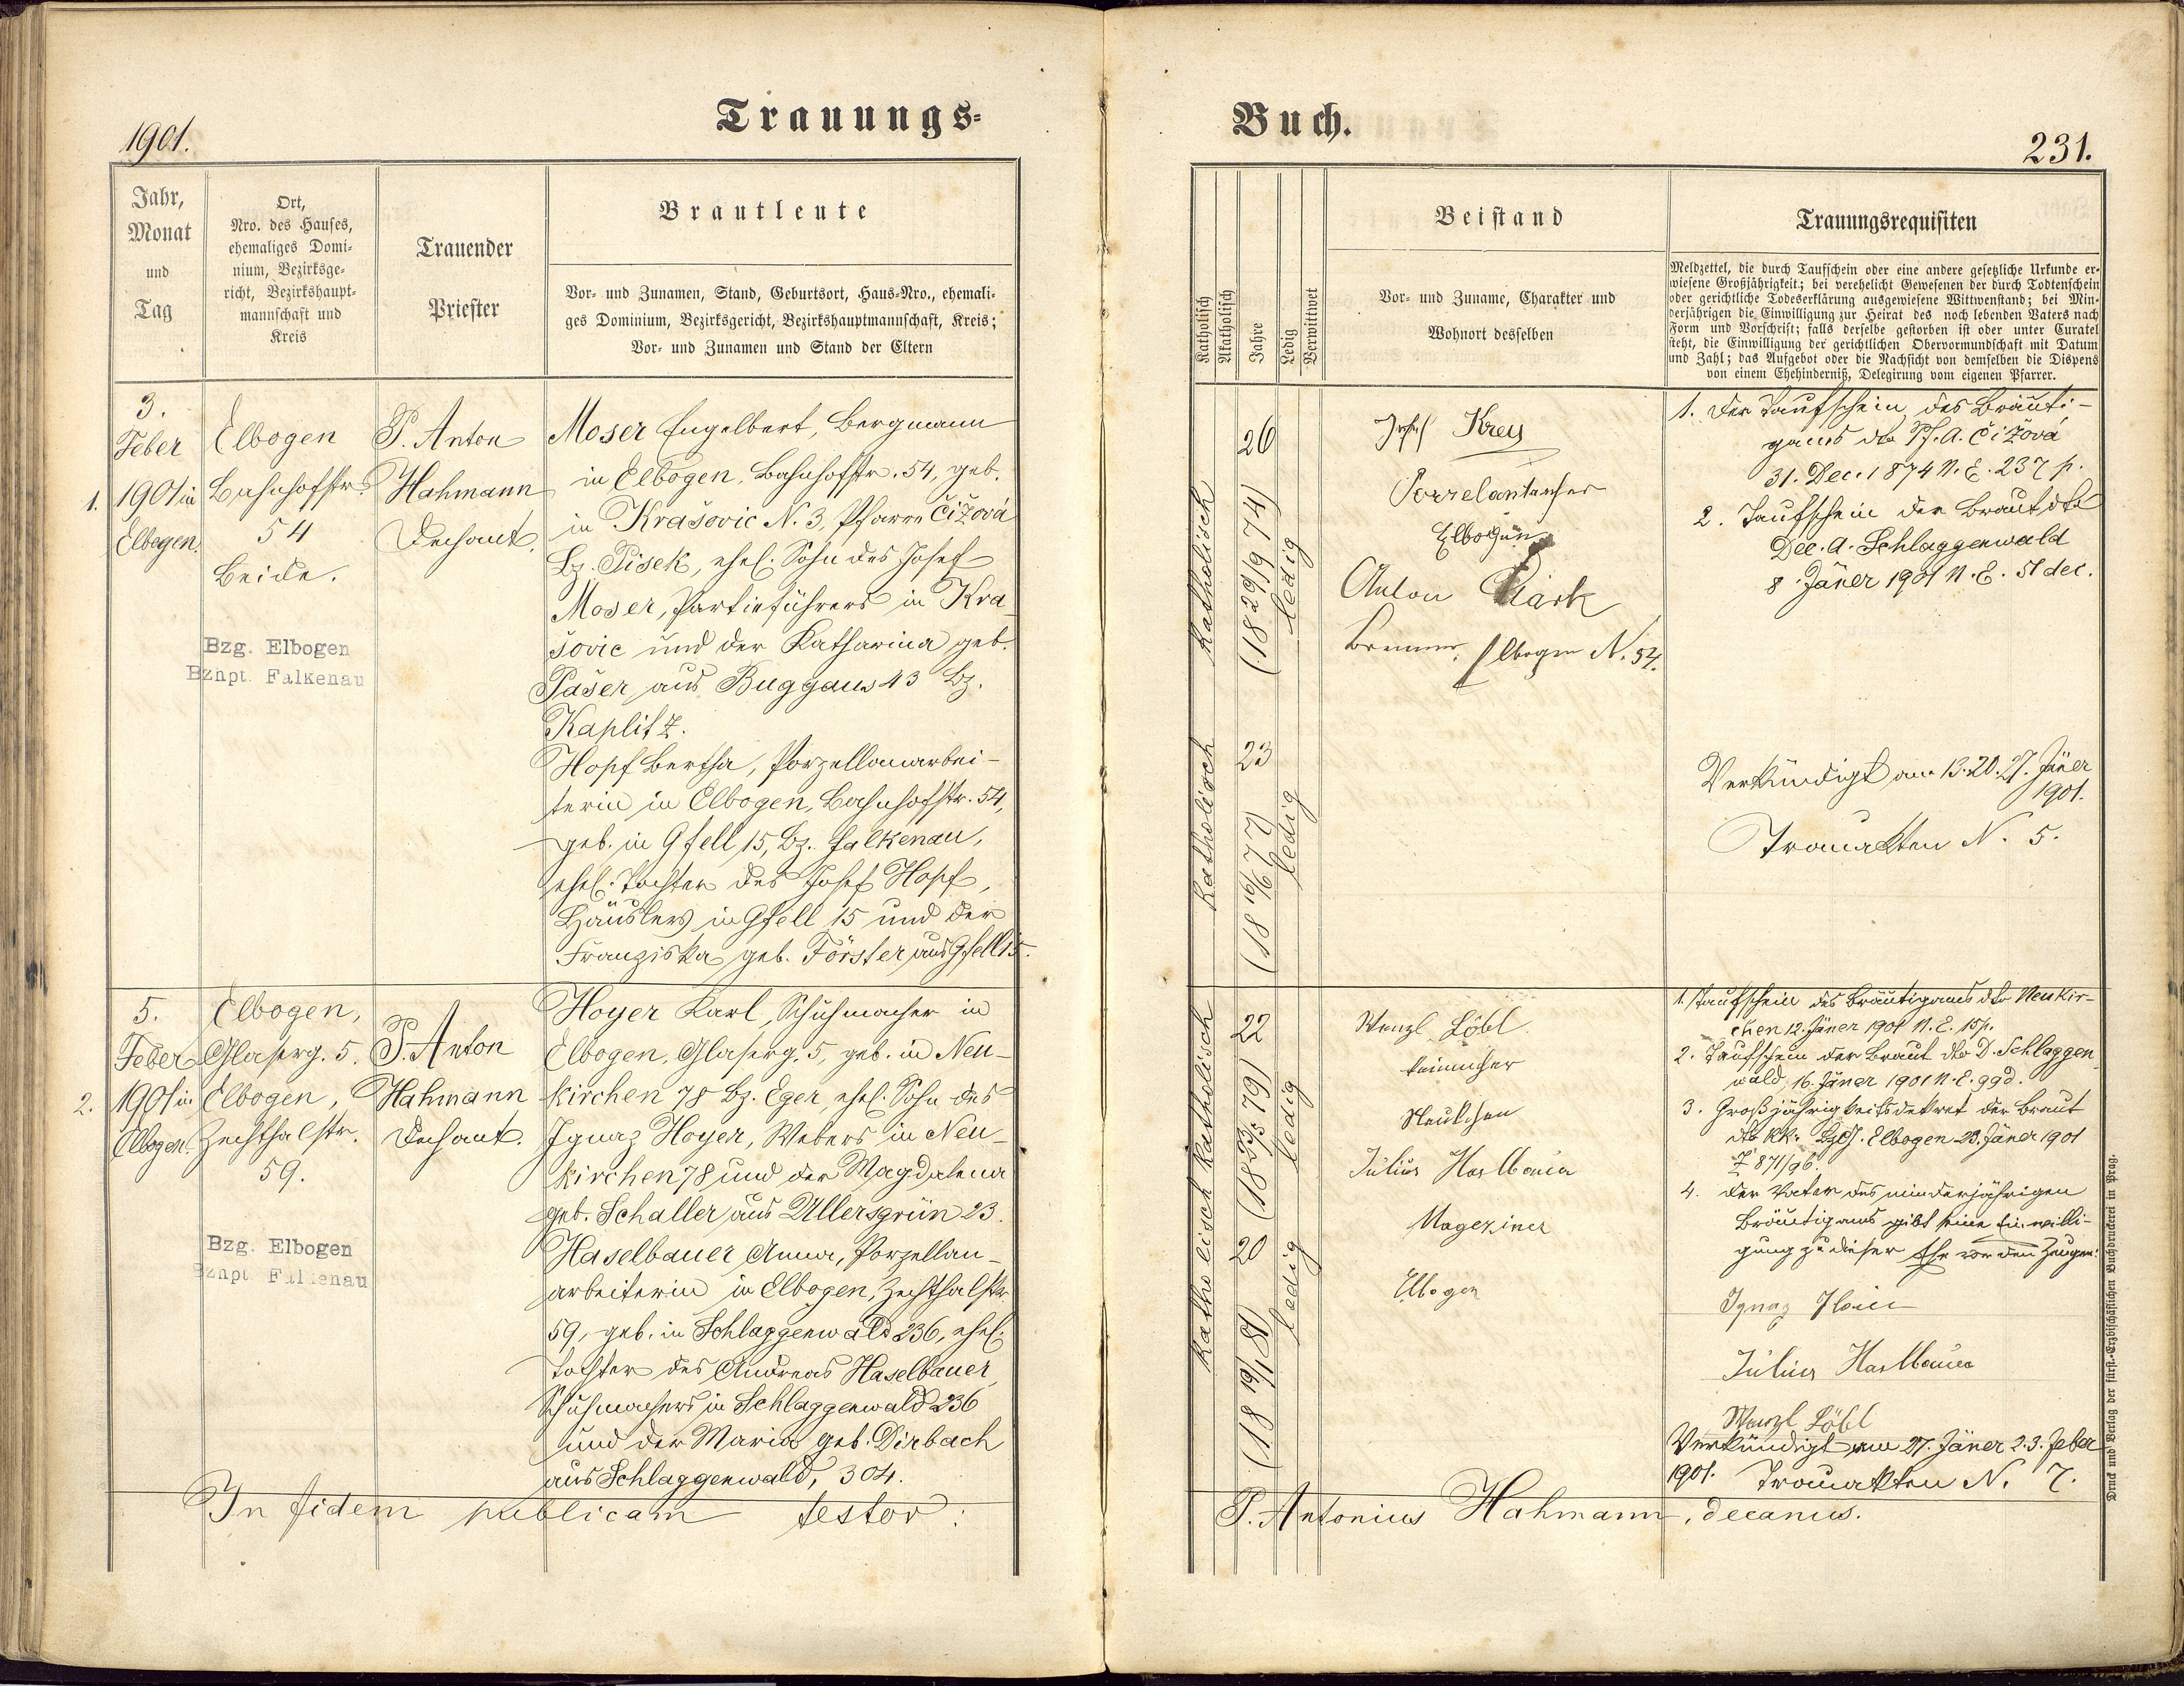 1901.
Trauungs-
Jahr,
Monat
und
Tag
Ort,
Nro. des Hauses,
ehemaliges Domi-
nium, Bezirksge-
richt, Bezirkshaupt-
mannschaft und
Kreis
Trauender
Priester
Brautleute
Vor- und Zunamen, Stand, Geburtsort, Haus-Nro., ehemali-
ges Dominium, Bezirksgericht, Bezirkshauptmannschaft, Kreis;
Vor- und Zunamen und Stand der Eltern
1.
3.
Feber
1901 in
Elbogen.
Elbogen
Bahnhofstr.
54
Beide.
Bzg. Elbogen
Bznpt. Falkenau
P. Anton
Hahmann
Dechant.
Moser Engelbert, Bergmann
in Elbogen, Bahnhofstr. 54, geb.
in Krašovic N. 3, Pfarre Čižová
Bz. Pisek, ehel. Sohn des Josef
Moser, Partieführers in Kra
šovic und der Katharina geb.
Pašer aus Buggaus 43 Bz.
Kaplitz.
Hopf Bertha, Porzellanarbei-
terin in Elbogen, Bahnhofstr. 54,
geb. in Gfell 15, Bz. Falkenau,
ehel. Tochter des Josef Hopf,
Häuslers in Gfell 15 und der
Franziska geb. Förster aus Gfell 15.
2.
5.
Feber
1901 in
Elbogen.
Elbogen,
Glaserg. 5.
Elbogen,
Zechthalstr.
59.
Bzg. Elbogen
Bznpt Falkenau
P. Anton
Hahmann
Dechant.
Hoyer Karl, Schuhmacher in
Elbogen, Glaserg. 5, geb. in Neu-
kirchen 78 Bz. Eger, ehel. Sohn des
Ignaz Hoyer, Webers in Neu-
kirchen 78 und der Magdalena
geb. Schaller aus Ullersgrün 23.
Haselbauer Anna, Porzellan-
arbeiterin in Elbogen, Zechthalstr
59, geb. in Schlaggenwald 236, ehel.
Tochter des Andreas Haselbauer,
Schuhmachers in Schlaggenwald 236
und der Maria geb. Dirbach
aus Schlaggenwald, 304.
In fidem publicam testor:
Buch.
231.
Katholisch
Akatholisch
Jahre
Ledig
Verwittwet
Beistand
Vor- und Zuname, Charakter und
Wohnort desselben
Trauungsrequisiten
Meldzettel, die durch Taufschein oder eine andere gesetzliche Urkunde er-
wiesene Großjährigkeit; bei verehelicht Gewesenen der durch Todtenschein
oder gerichtliche Todeserklärung ausgewiesene Wittwenstand; bei Min-
derjährigen die Einwilligung zur Heirat des noch lebenden Vaters nach
Form und Vorschrift; falls derselbe gestorben ist oder unter Curatel
steht, die Einwilligung der gerichtlichen Obervormundschaft mit Datum
und Zahl; das Aufgebot oder die Nachsicht von demselben die Dispens
von einem Ehehinderniß, Delegirung vom eigenen Pfarrer.
katholisch
26
(18 29/9 74)
ledig
Josef Krey
Elbogen
Anton
Brenner, Elbogen N. 54.
1. Der Taufschein des Bräuti-
gams dto Pf. A. Čižová
31. Dec. 1874 N. E. 237 p.
2. Taufschein der Braut dto
Dec. A. Schlaggenwald
8. Jäner 1901 N. E. 51 dec.
katholisch
23
(18 16/6 77)
ledig
Verkündigt am 13. 20. 27. Jäner
1901.
Trauakten N. 5.
katholisch
22
ledig
Wenzl Löbl
Julius Haslbauer
Magaziner
Elbogen
1. Taufschein des Bräutigams dto Neukir-
chen 12. Jäner 1901 N. E. 15 p.
2. Taufschein der Braut dto D. Schlaggen
wald, 16. Jäner 1901 N. E. 99 d.
3. Großjährigkeitsdekret der Braut
dto kk. Bzg. Elbogen 23. Jäner 1901
Z 871/96.
4. Der Vater des minderjährigen
Bräutigams gibt seine Einwilli-
gung zu dieser Ehe vor den Zeugen:
Ignaz
Julius Haslbauer
Wenzl Löbl
katholisch
20
(18 19/1 81)
ledig
Verkündigt am 27. Jäner 2. 3. Feber
1901. Trauakten N. 7.
P. Antonius Hahmann, decanus.
Druck und Verlag der fürst-Erzbischöflichen Buchdruckerei in Prag.